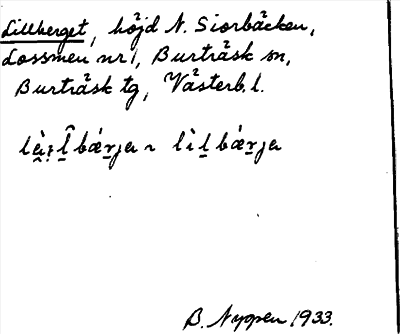 Lillberget, höjd N. Siorbäcken,
Lossmen nr 1, Burträsk sn,
Burträsk tg, Västerb. l.
bǽrja ~ lìl bǽrja
B. Nyppen 1933.